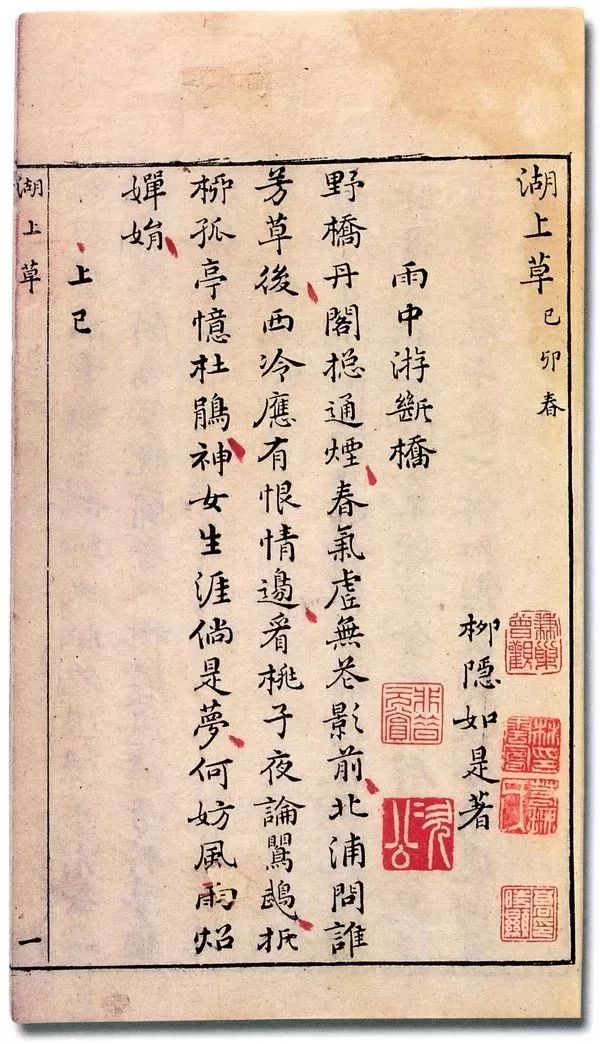 湖上草 己卯春
柳隱如是著
雨中游斷橋
野橋丹閣摠通煙春氣虛無花影前北浦問誰
芳草後西泠應有恨情邉看桃子夜論鸎鵡折
柳孤亭憶杜鵑神女生涯倘是夢何妨風雨炤
嬋娟
上巳
湖上草 一